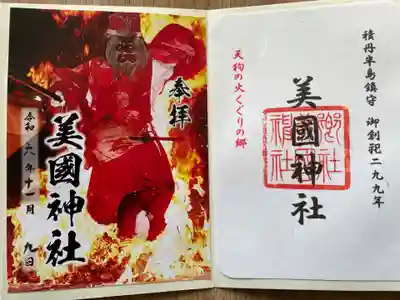 積丹半島鎮守 御創祀二九九年
美國神社
天狗の火くぐりの郷
奉拝
美國神社
令和六年十一月九日